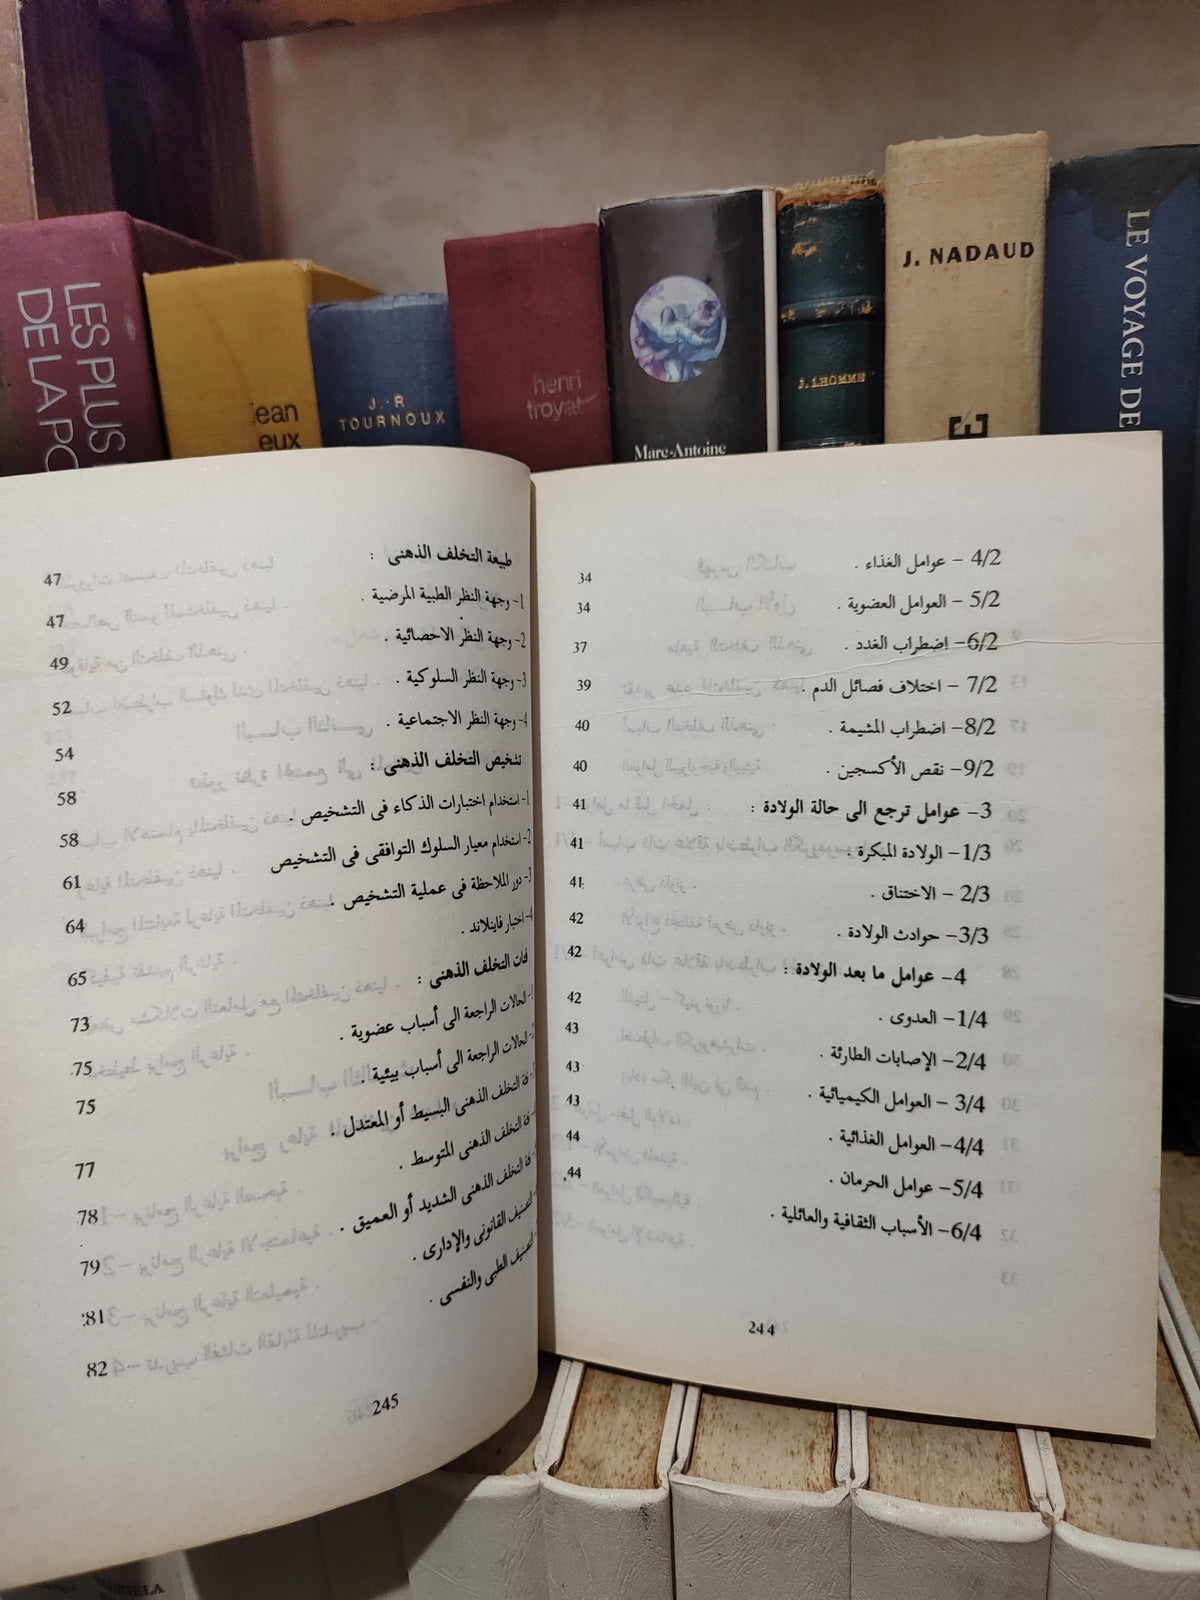 LES PLUS
DE LA PO
Jean
eux
J.-R
TOURNOUX
henri
troyat
Marc-Antoine
J. LHOMME
J. NADAUD
LE VOYAGE DE
4/2 – عوامل الغذاء . 34
5/2 – العوامل العضوية . 34
6/2– اضطراب الغدد . 37
7/2 – اختلاف فصائل الدم . 39
8/2– اضطراب المشيمة . 40
9/2– نقص الأكسجين . 40
3– عوامل ترجع الى حالة الولادة : 41
1/3– الولادة المبكرة . 41
2/3 – الاختناق . 41
3/3– حوادث الولادة . 42
4– عوامل ما بعد الولادة : 42
1/4– العدوى . 42
2/4– الإصابات الطارئة . 43
3/4 – العوامل الكيميائية . 43
4/4– العوامل الغذائية . 43
5/4– عوامل الحرمان . 44
6/4– الأسباب الثقافية والعائلية . 44
244
طبيعة التخلف الذهنى : 47
1– وجهة النظر الطبية المرضية . 47
2– وجهة النظر الاحصائية . 49
3– وجهة النظر السلوكية . 52
4– وجهة النظر الاجتماعية . 54
تشخيص التخلف الذهنى : 58
1– استخدام اختبارات الذكاء فى التشخيص . 58
2– استخدام معيار السلوك التوافقى فى التشخيص 61
3– دور الملاحظة فى عملية التشخيص . 64
4– اختبار فاينلاند . 65
فئات التخلف الذهنى : 73
1– الحالات الراجعة الى أسباب عضوية . 75
2– الحالات الراجعة الى أسباب بيئية . 75
فئة التخلف الذهنى البسيط أو المعتدل . 77
فئة التخلف الذهنى المتوسط . 78
فئة التخلف الذهنى الشديد أو العميق . 79
التصنيف القانونى والإدارى . 81
التصنيف الطبى والنفسى . 82
245